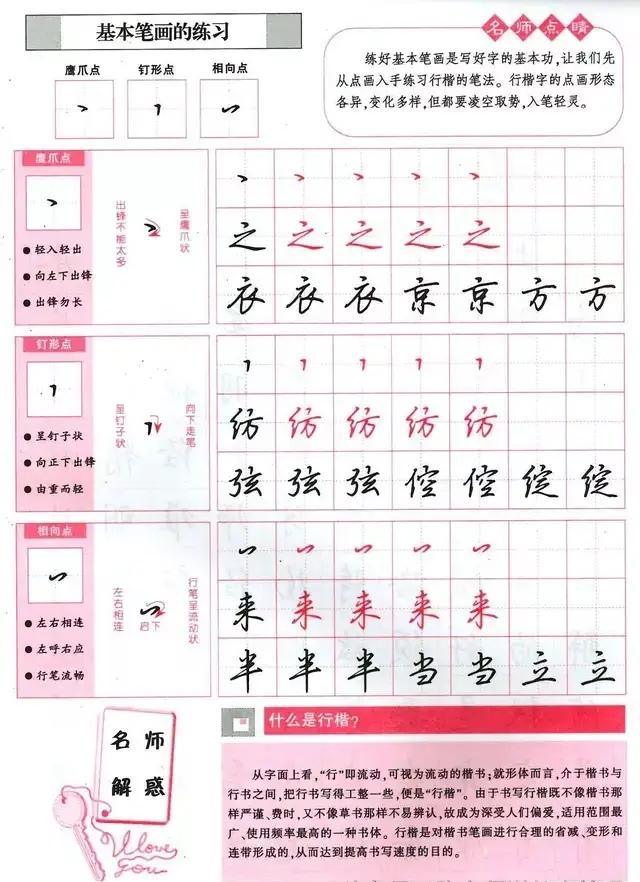 基本笔画的练习
鹰爪点 钉形点 相向点
名师点睛
练好基本笔画是写好字的基本功,让我们先
从点画入手练习行楷的笔法。行楷字的点画形态
各异,变化多样,但都要凌空取势,入笔轻灵。
鹰爪点
● 轻入轻出
● 向左下出锋
● 出锋勿长
出锋不能太多
呈鹰爪状
之 之 之 之 之
衣 衣 衣 京 京 方 方
钉形点
● 呈钉子状
● 向正下出锋
● 由重而轻
呈钉子状
向下走笔
纺 纺 纺 纺 纺
弦 弦 弦 倥 倥 绽 绽
相向点
● 左右相连
● 左呼右应
● 行笔流畅
左右相连
启下
行笔呈流动状
来 来 来 来 来
半 半 半 当 当 立 立
名师
解惑
I love
you
什么是行楷?
从字面上看,“行”即流动,可视为流动的楷书;就形体而言,介于楷书与
行书之间,把行书写得工整一些,便是“行楷”。由于书写行楷既不像楷书那
样严谨、费时,又不像草书那样不易辨认,故成为深受人们偏爱,适用范围最
广、使用频率最高的一种书体。行楷是对楷书笔画进行合理的省减、变形和
连带形成的,从而达到提高书写速度的目的。